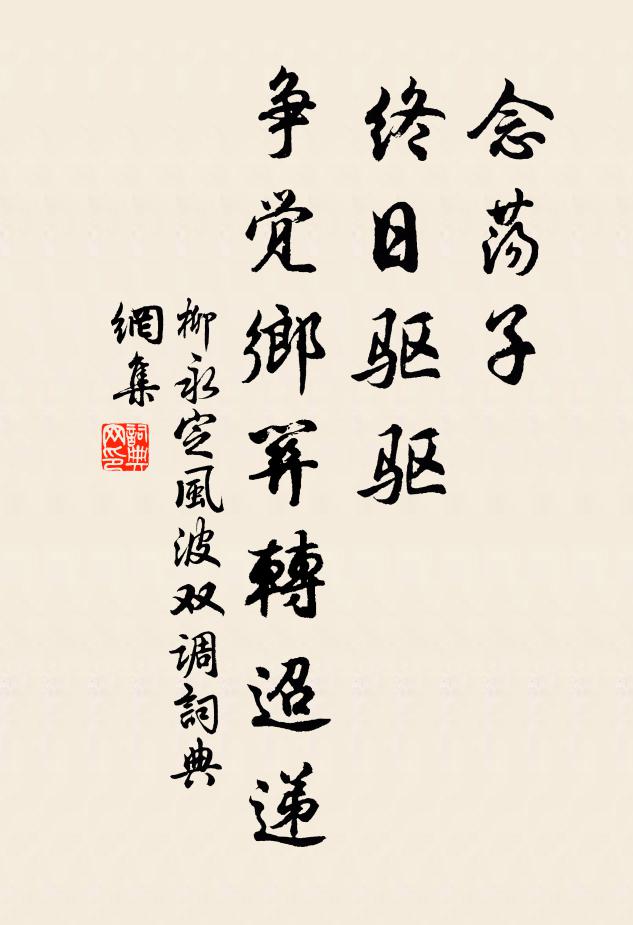 念荡子
终日驱驱
争觉鄉関轉迢递
柳永定風波双调詞典
網集
詞典
网印